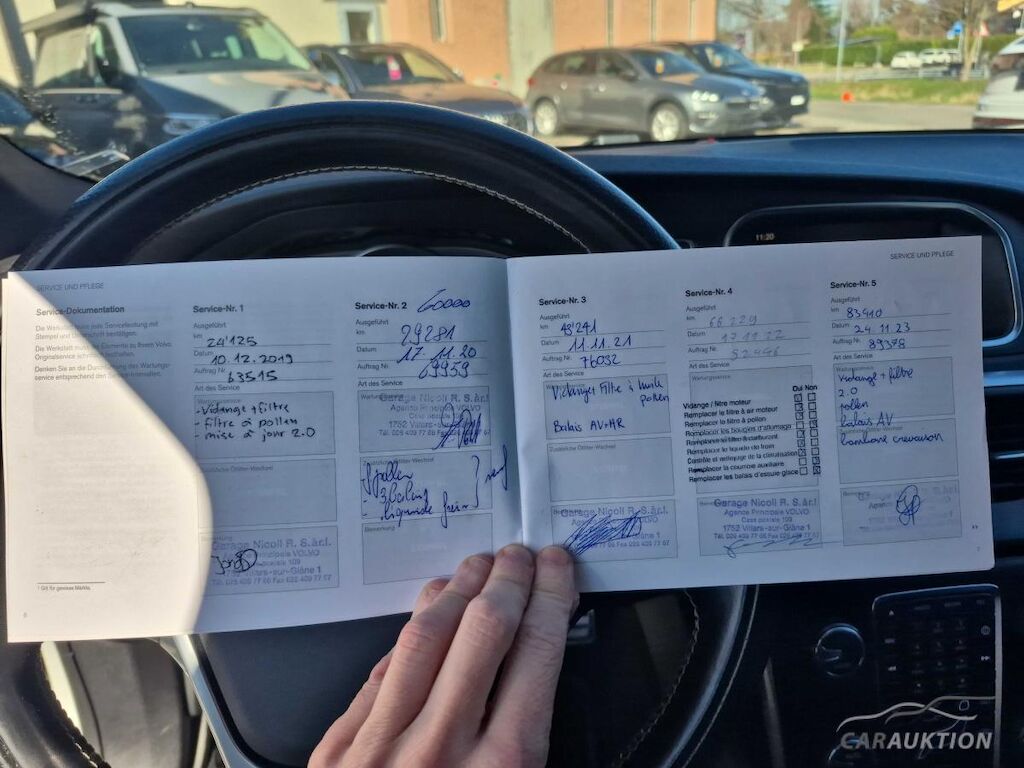 SERVICE UND PFLEGE
Service-Dokumentation
Die Werkstatt muss jede Serviceleistung mit
Stempel und Unterschrift bestätigen.
¹ Gilt für gewisse Märkte.
6
Service-Nr. 1
Ausgeführt
km 24'125
Datum 10.12.2019
Auftrag Nr. 63515
Art des Service
- Vidange + filtre
- filtre à pollen
- mise à jour 2.0
Garage Nicoli R. S.àr.l
Agence Principale VOLVO
1752 Villars-sur-Glâne 1
Tél. 026 409 77 66 Fax 026 409 77 67
Service-Nr. 2 60000
Ausgeführt
km 29281
Datum 17.11.20
Auftrag Nr. 69959
Art des Service
Garage Nicoli R. S.àr.l
Agence Principale VOLVO
Case postale 109
1752 Villars-sur-Glâne 1
Tél. 026 409 77 66 Fax 026 409 77 67
Zusätzliche Ölfilter-Wechsel
pollen
liquide frein
Bemerkung
SERVICE UND PFLEGE
Service-Nr. 3
Ausgeführt
km 48'241
Datum 11.11.21
Auftrag Nr. 76032
Art des Service
Vidange Filtre à huile
pollen
Balais AV+AR
Zusätzliche Ölfilter-Wechsel
Garage Nicoli R. S.àr.l
Agence Principale VOLVO
Case postale 109
1752 Villars-sur-Glâne 1
Tél. 026 409 77 66 Fax 026 409 77 67
Service-Nr. 4
Ausgeführt
km 66 229
Datum 17.11.22
Auftrag Nr.
Art des Service
Oui Non
Vidange / filtre moteur
Remplacer le filtre à air moteur
Remplacer le filtre à pollen
Remplacer les bougies d'allumage
Remplacer le filtre à carburant
Remplacer le liquide de frein
Contrôle et nettoyage de la climatisation
Remplacer la courroie auxiliaire
Remplacer les balais d'essuie-glace
Garage Nicoli R. S.àr.l
Agence Principale VOLVO
Case postale 109
1752 Villars-sur-Glâne 1
Tél. 026 409 77 66 Fax 026 409 77 67
Service-Nr. 5
Ausgeführt
km 83410
Datum 24.11.23
Auftrag Nr. 89378
Art des Service
Vidange + filtre
2.0
pollen
balais AV
Zusätzliche Ölfilter-Wechsel
7
11:20
CARAUKTION